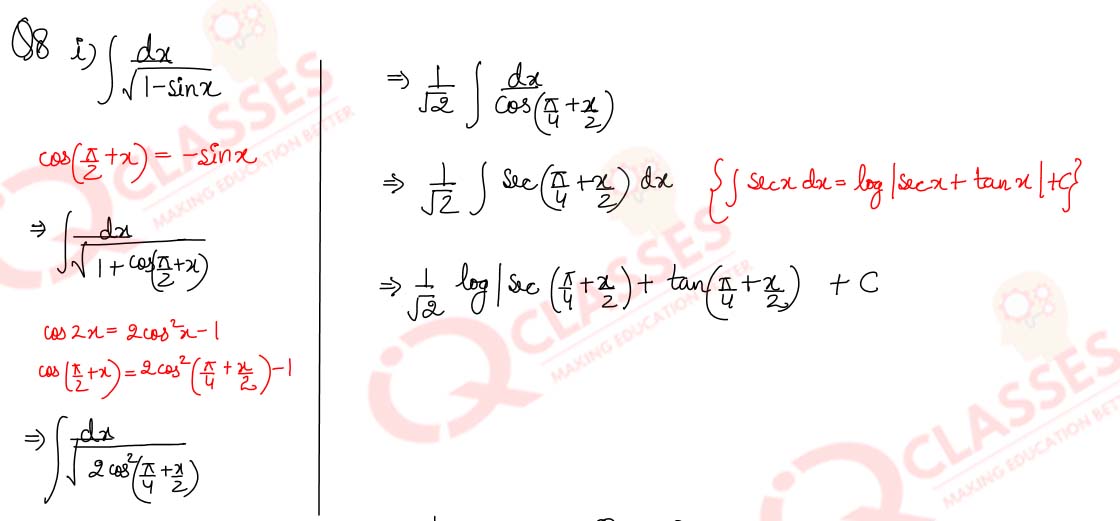 Q8 i) ∫ dx/√(1-sinx)
cos(π/2+x) = -sinx
⇒ ∫ dx/√(1+cos(π/2+x))
cos2x = 2cos²x-1
cos(π/2+x) = 2cos²(π/4+x/2)-1
⇒ ∫ dx/√(2cos²(π/4+x/2))
⇒ 1/√2 ∫ dx/cos(π/4+x/2)
⇒ 1/√2 ∫ sec(π/4+x/2) dx {∫ secx dx = log|secx+tanx|+C}
⇒ 1/√2 log|sec(π/4+x/2)+tan(π/4+x/2) + C
CLASSES
MAKING EDUCATION BETTER
CLASSES
MAKING EDUCATION BETTER
CLASSES
MAKING EDUCATION BETTER